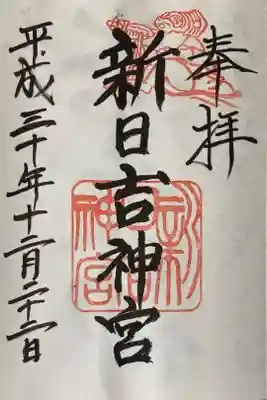 奉拝
新日吉神宮
平成三十年十二月二十二日